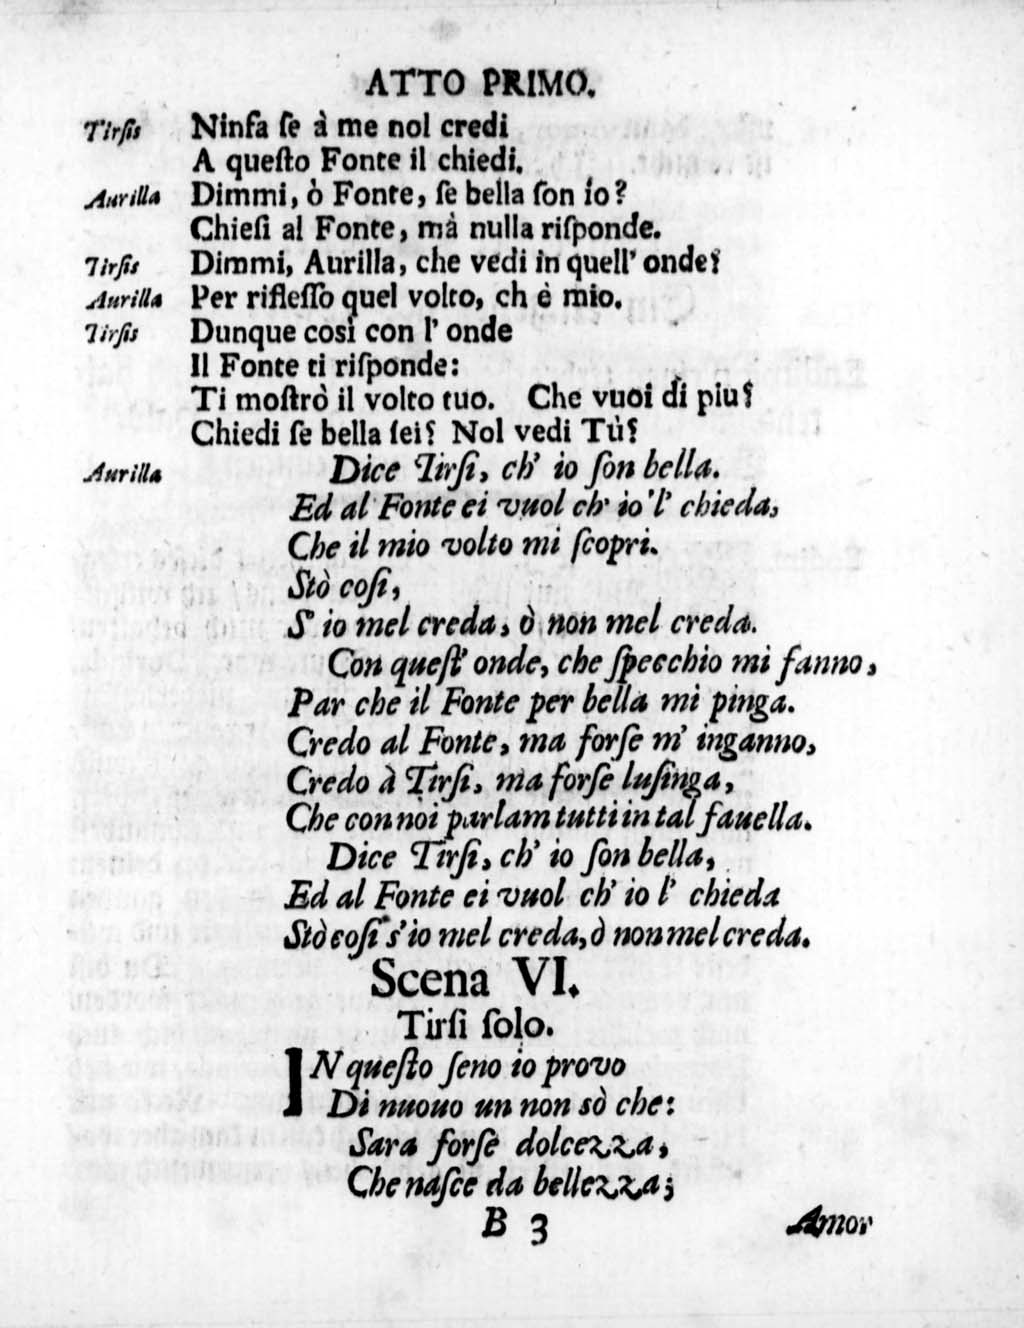 ATTO PRIMO.
Tirſis Ninfa ſe à me nol credi
A queſto Fonte il chiedi.
Aurilla Dimmi, ò Fonte, ſe bella ſon io?
Chieſi al Fonte, mà nulla riſponde.
Tirſis Dimmi, Aurilla, che vedi in quell' onde?
Aurilla Per rifleſſo quel volto, ch è mio.
Tirſis Dunque così con l' onde
Il Fonte ti riſponde:
Ti moſtrò il volto tuo. Che vuoi di piu?
Chiedi ſe bella ſei? Nol vedi Tù?
Aurilla Dice Tirſi, ch' io ſon bella.
Ed al Fonte ei vuol ch' io 'l' chieda,
Che il mio volto mi ſcopri.
Stò coſi,
S' io mel creda, ò non mel creda.
Con queſt' onde, che ſpecchio mi fanno,
Par che il Fonte per bella mi pinga.
Credo al Fonte, ma forſe m' inganno,
Credo à Tirſi, ma forſe luſinga,
Che con noi parlam tutti in tal fauella.
Dice Tirſi, ch' io ſon bella,
Ed al Fonte ei vuol ch' io l' chieda
Stò coſi s' io mel creda, ò non mel creda.
Scena VI.
Tirſi ſolo.
IN queſto ſeno io provo
Di nuouo un non sò che:
Sara forſe dolcezza,
Che naſce da bellezza;
B 3 Amor